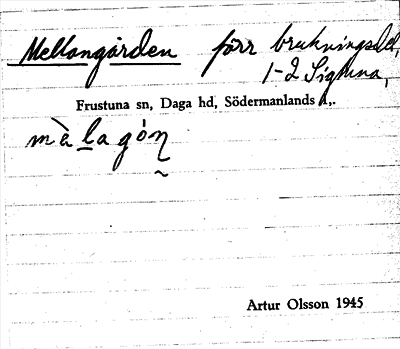 Mellangården förr brukningsdel,
1-2 Sigtuna,
Frustuna sn, Daga hd, Södermanlands l,.
màlagón
Artur Olsson 1945